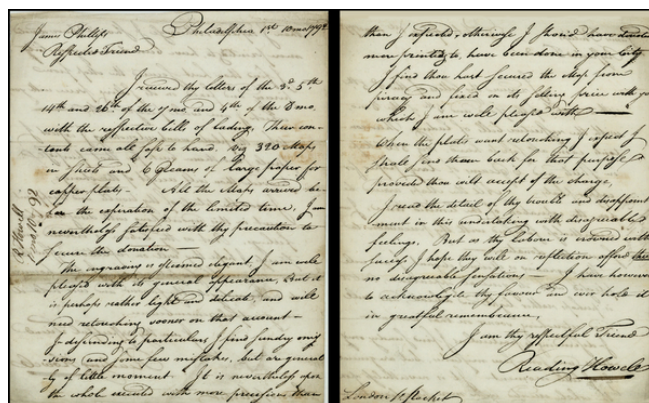 James Phillips
Philadelphia 1st 10 mo 1792
Respected Friend
I received thy letters of the 3d. 5th
14th and 26th of the 7 mo. and 4th of the 8 mo.
with the respective bills of lading. Their con-
tents came all safe to hand. Viz 390 Maps
in sheets and 6 Reams of large paper for
copper plate. All the Maps arrived be-
fore the expiration of the limited time, I am
nevertheless satisfied with thy precaution to
secure the donation —
The engraving is esteemed elegant, I am well
pleased with its general appearance, But it
is perhaps rather light and delicate, and will
need retouching sooner on that account —
descending to particulars I find sundry omis-
sions and some few mistakes, but are general-
ly of little moment. It is nevertheless upon
the whole executed with more precision than
R Howell
92
than I expected, otherwise I should have
more printed to have been done in your City
I find thou hast secured the Map from
piracy and fixed on its selling price with you
which I am well pleased with —
When the plates want retouching I expect I
shall send them back for that purpose
provided thou wilt accept of the charge,
I read the detail of thy trouble and disappoint
ment in this undertaking with disagreeable
feelings. But as thy labour is crowned with
I hope they will on reflection afford thee
no disagreeable sensations — I have however
to acknowledge thy favour and ever hold it
in greatful remembrance,
I am thy respectful Friend
Reading Howell
London